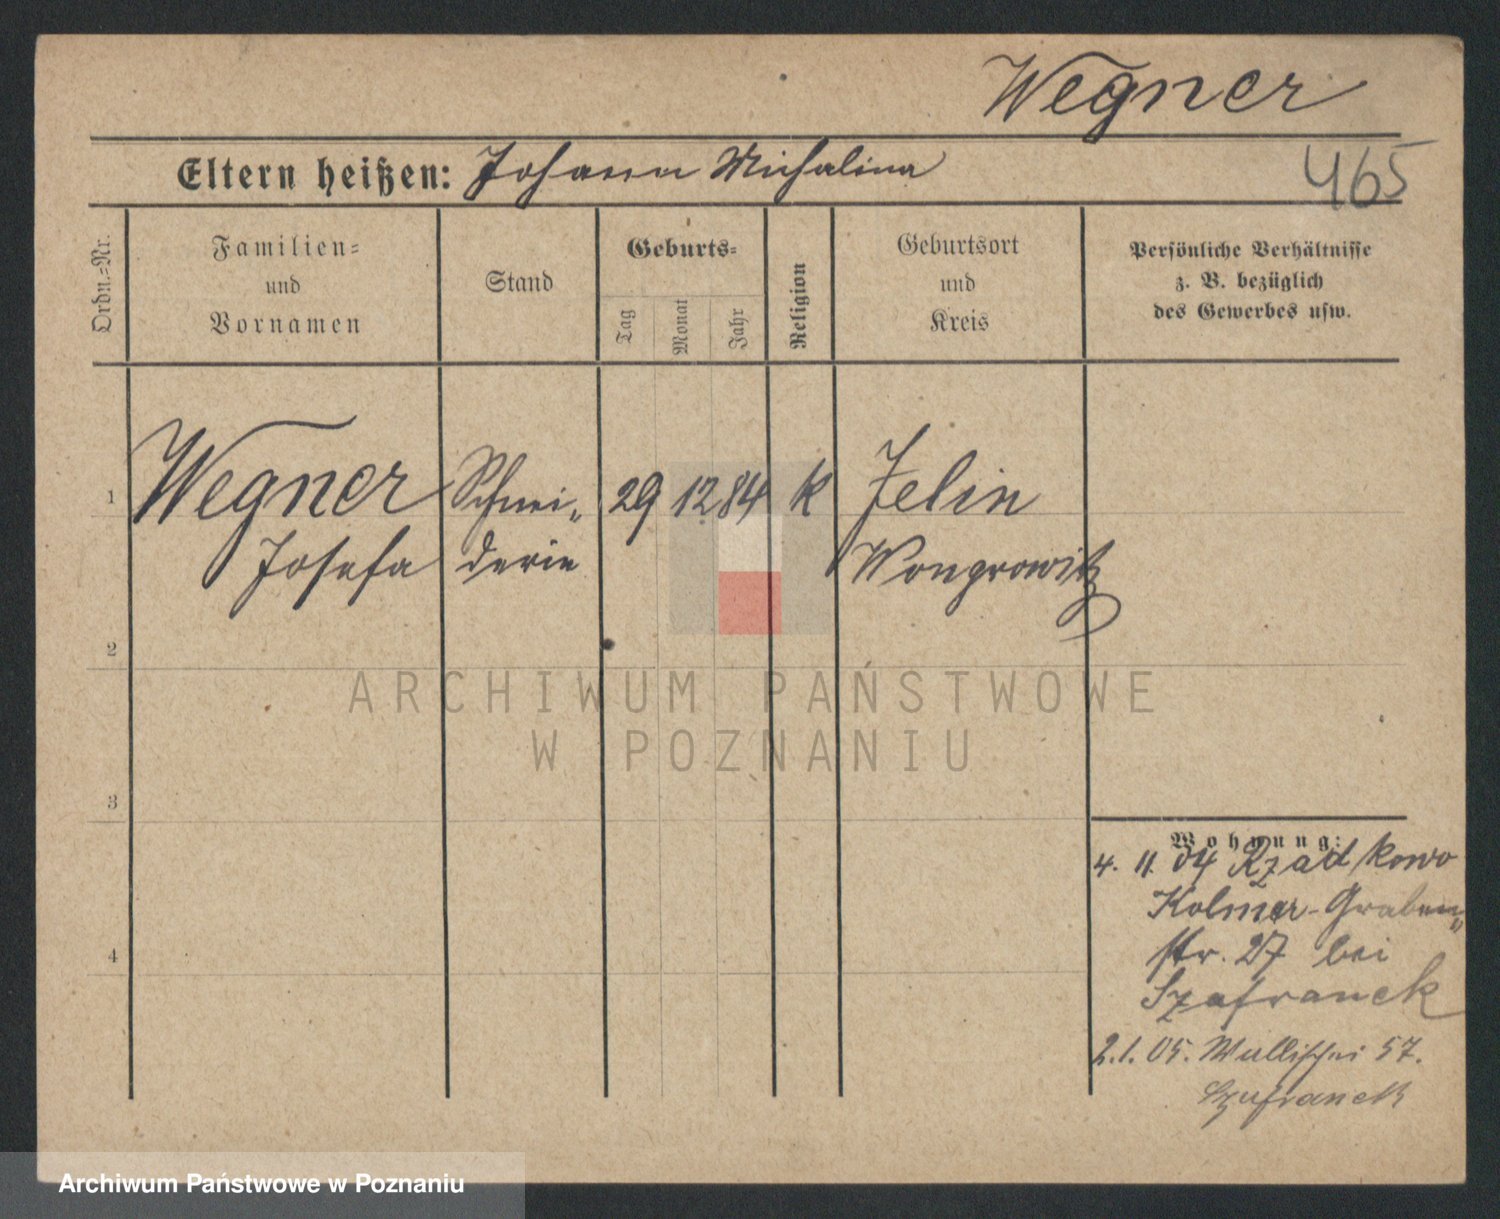 Wegner
465
Eltern heißen: Johann Michalina
Ordn.=Nr.
Familien=
und
Vornamen
Stand
Geburts=
Tag
Monat
Jahr
Religion
Geburtsort
und
Kreis
Persönliche Verhältnisse
z. B. bezüglich
des Gewerbes usw.
1
Wegner
Josefa
Schnei„
derin
29 12 84
k
Jelin
Wongrowitz
2
ARCHIWUM PAŃSTWOWE
W POZNANIU
3
4
Wohnung:
4. 11. 04 Rzadkowo
Kolmar - Graben„
str. 27 bei
Szafranek
2.1.05. Wallischei 57.
Szafranek
Archiwum Państwowe w Poznaniu